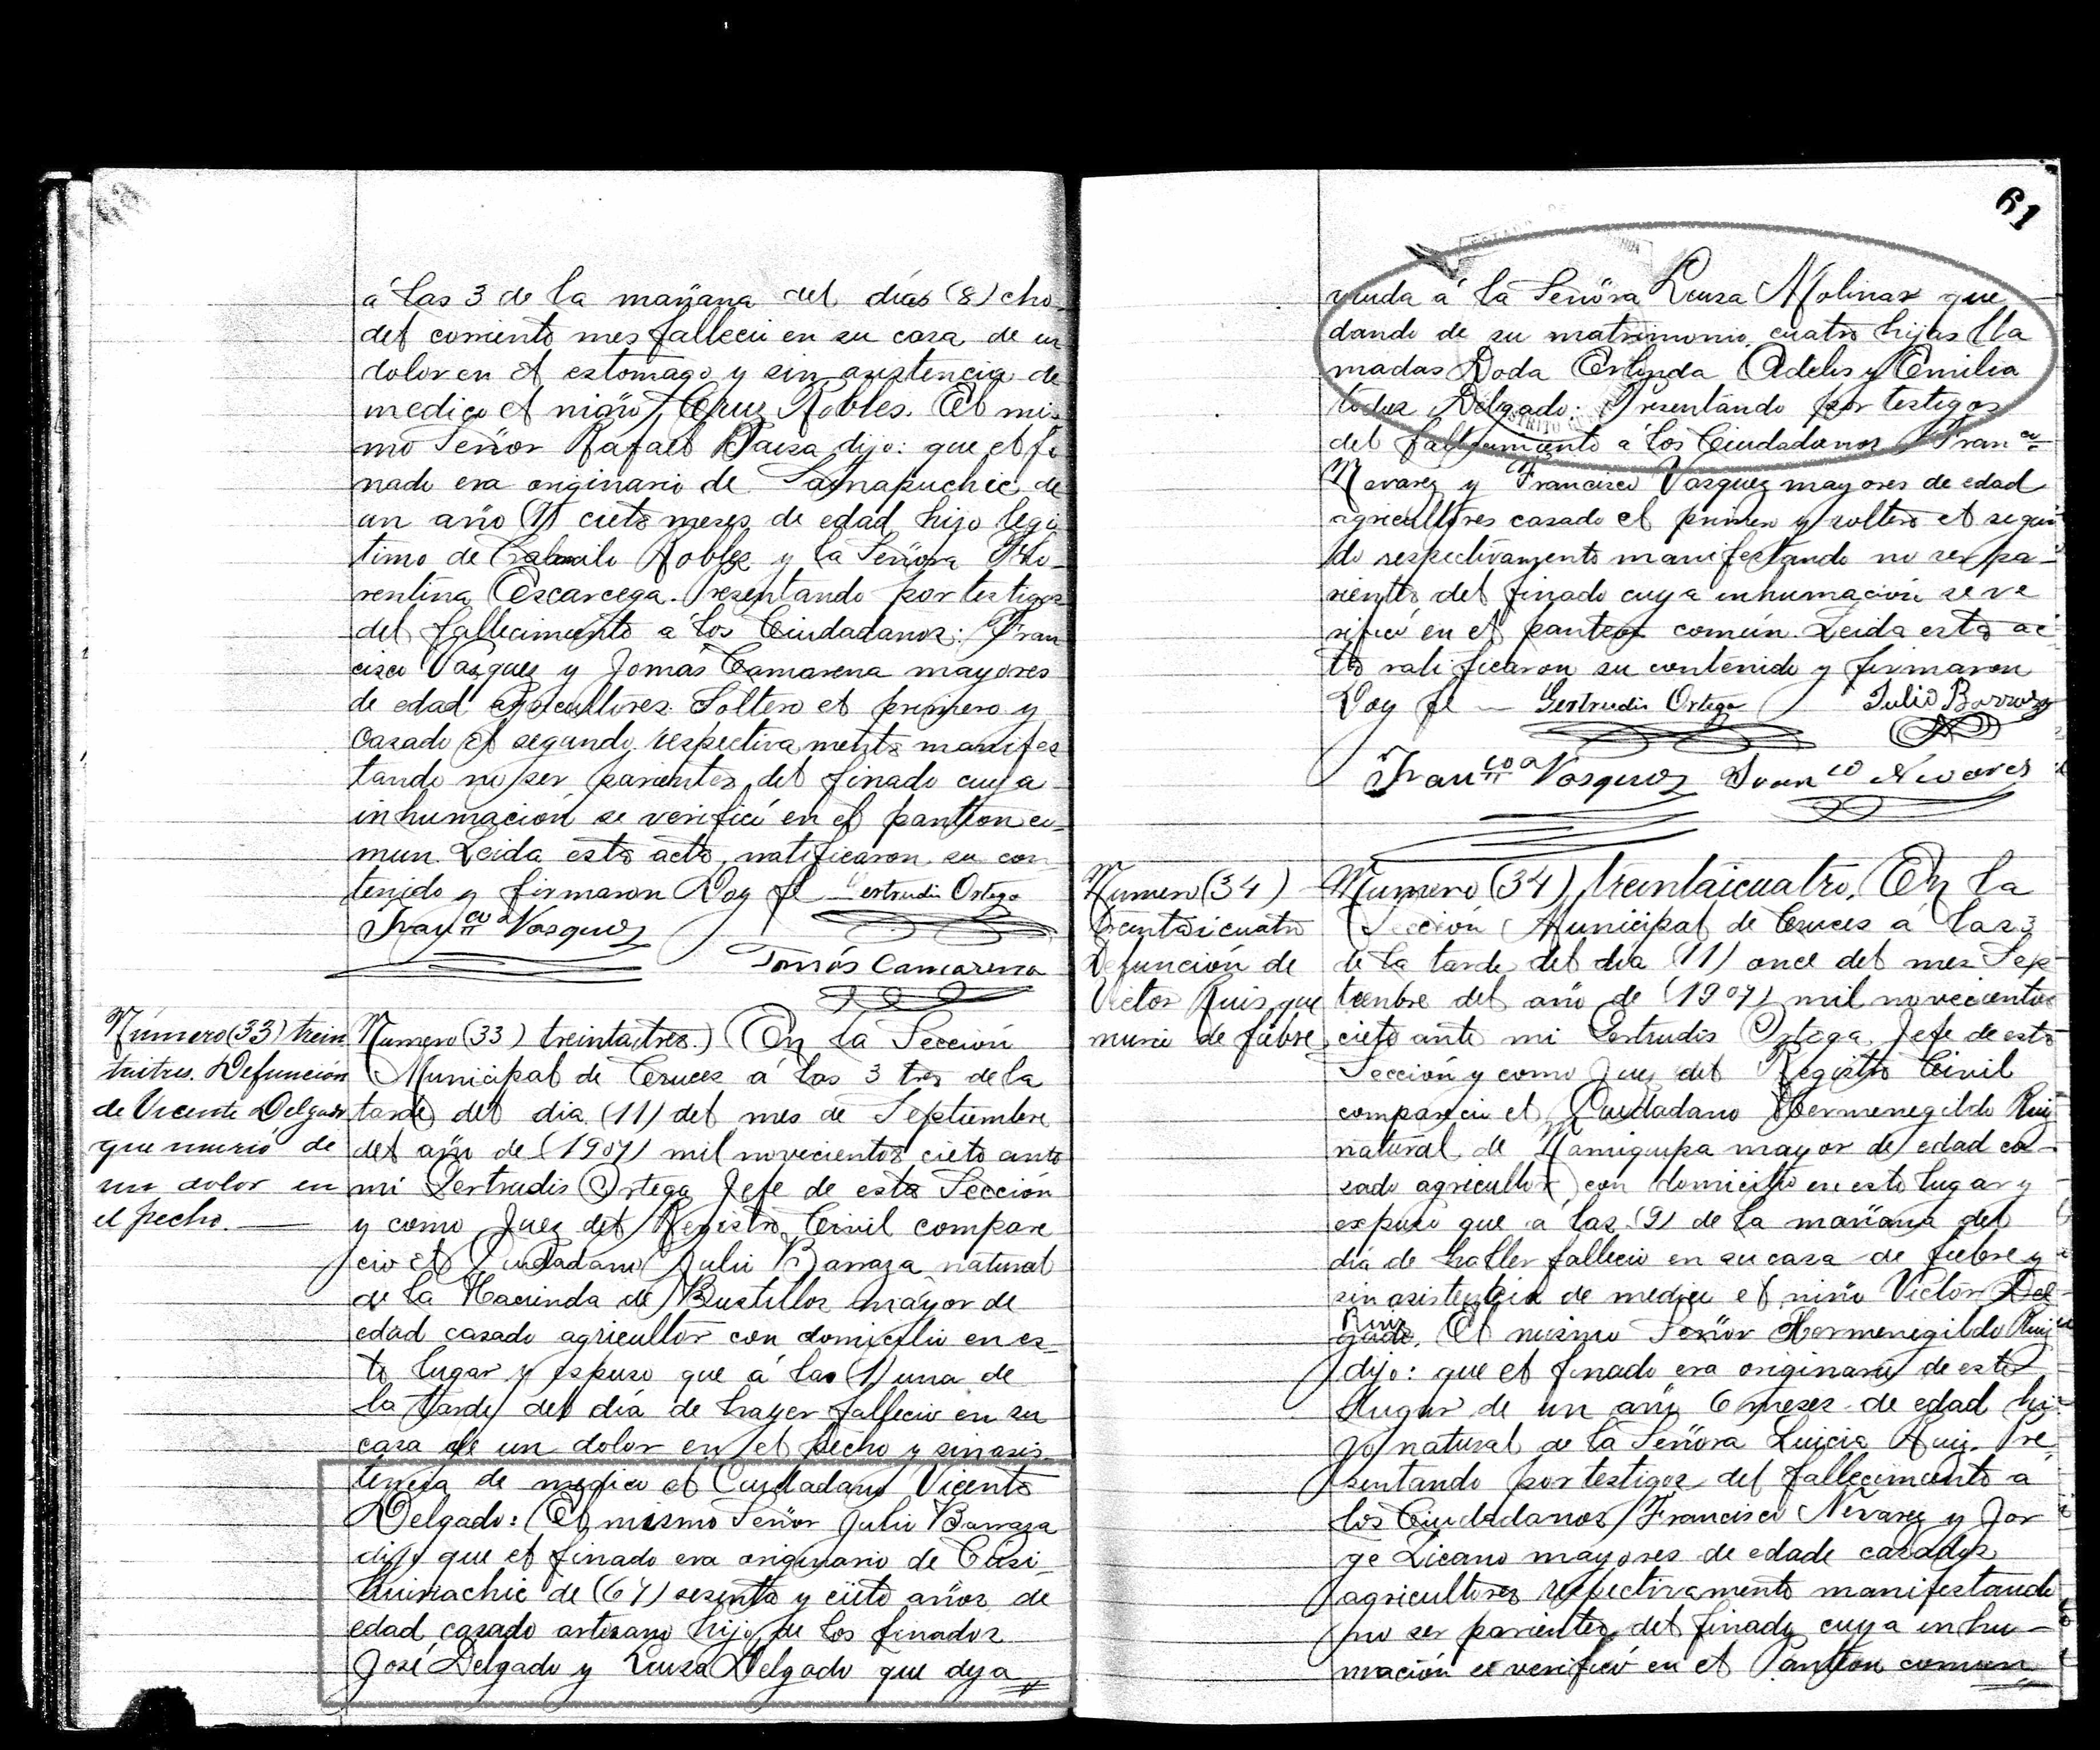 á las 3 de la mañana del días (8) cho
del corriente mes fallecio en su casa de un
dolor en el estomago y sin asistencia de
medico el niño Cruz Robles. El mis
mo Señor Rafael Baeza dijo: que el fi
nado era originario de de
un año (7) ciete meses de edad hijo legi
timo de Robles y la Señora Flo
rentina Escarcega. Presentando por testigos
del fallecimiento a los Ciudadanos: Fran
cisco Vasquez y Tomás Camarena mayores
de edad agricultores Soltero el primero y
Casado el segundo respectivamente manifes
tando no ser parientes del finado cuya
inhumación se verificó en el panteon co
mun. Leida esta acta, ratificaron su con
tenido y firmaron Doy fe Gertrudis Ortega
Franco Vasquez
Tomás Camarena
Número (33) trein
taitres. Defunción
de Vicente Delgado
que murió de
un dolor en
el pecho.
Numero (33) treintaitres.) En la Sección
Municipal de Cruces á las 3 tres de la
tarde del dia (11) del mes de Septiembre
del año de (1907) mil novecientos ciete ante
mi Gertrudis Ortega Jefe de esta Sección
y como Juez del Registro Civil compare
cio el Ciudadano Julio Barraza natural
de la Hacinda de Bustillos mayor de
edad casado agricultor con domicilio en es
te lugar y espuso que á las (1) una de
la tarde del día de hayer fallecio en su
casa de un dolor en el pecho y sin asis
tencia de medico el Ciudadano Vicente
Delgado: El mismo Señor Julio Barraza
dijo que el finado era originario de Cusi
huiriachic de (67) sesenta y ciete años de
edad casado artesano hijo de los finados
José Delgado y Luisa Delgado que deja
61
viuda á la Señora Luisa Molinar que
dando de su matrimonio cuatro hijas lla
madas Doda Erlinda Adelis y Emilia
todas Delgado: Presentando por testigos
del fallecimiento a los Ciudadanos Franco
Nevarez y Francisco Vasquez mayores de edad
agricultores casado el primero y soltero el segun
do respectivamente manifestando no ser pa
rientes del finado cuya inhumación se ve
rificó en el panteon común. Leida esta ac
ta ratificaron su contenido y firmaron
Doy fe Gertrudis Ortega Julio Barraza
Franco Vasquez Franco Nevares
Numero (34)
treintaicuatro
Defunción de
Victor Ruis que
murio de fiebre
Numero (34) treintaicuatro. En la
Sección Municipal de Cruces á las 3
de la tarde del dia (11) once del mes Sep
tienbre del año de (1907) mil novecientos
ciete ante mi Gertrudis Ortega Jefe de esta
Sección y como Juez del Registro Civil
comparecio el Ciudadano Hermenegildo Ruiz
natural de Namiquipa mayor de edad ca
sado agricultor con domicilio en este lugar y
expuso que a las (9) de la mañana del
dia de haller fallecio en su casa de fiebre y
sin asistencia de medico el niño Victor Del
Ruiz
gado. El mismo Señor Hermenegildo Ruiz
dijo: que el finado era originario de este
lugar de un año 6 meses de edad hi
jo natural de la Señora Luicia Ruiz. Pre
sentando por testigos del fallecimiento a
los Ciudadanos Francisco Nevarez y Jor
ge Licano mayores de edade casados
agricultores respectivamente manifestando
no ser parientes del finado cuya inhu
mación se verificó en el Panteon comun